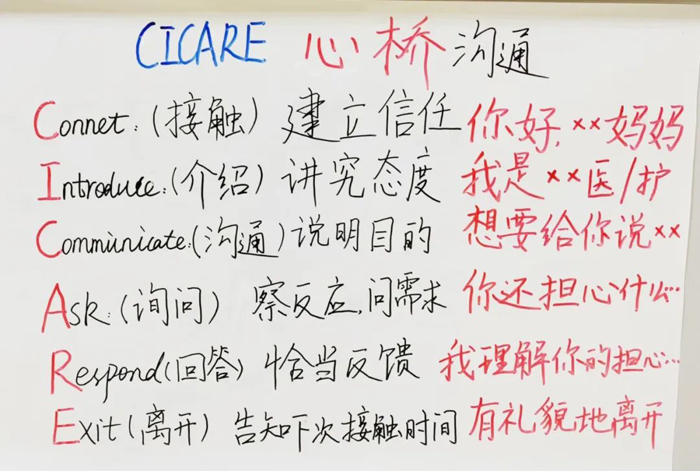 CICARE 心桥沟通
Connet:(接触) 建立信任 你好,××妈妈
Introduce:(介绍) 讲究态度 我是××医/护
Communicate:(沟通)说明目的 想要给你说××
Ask:(询问) 察反应,问需求 你还担心什么…
Respond(回答) 恰当反馈 我理解你的担心…
Exit(离开) 告知下次接触时间 有礼貌地离开